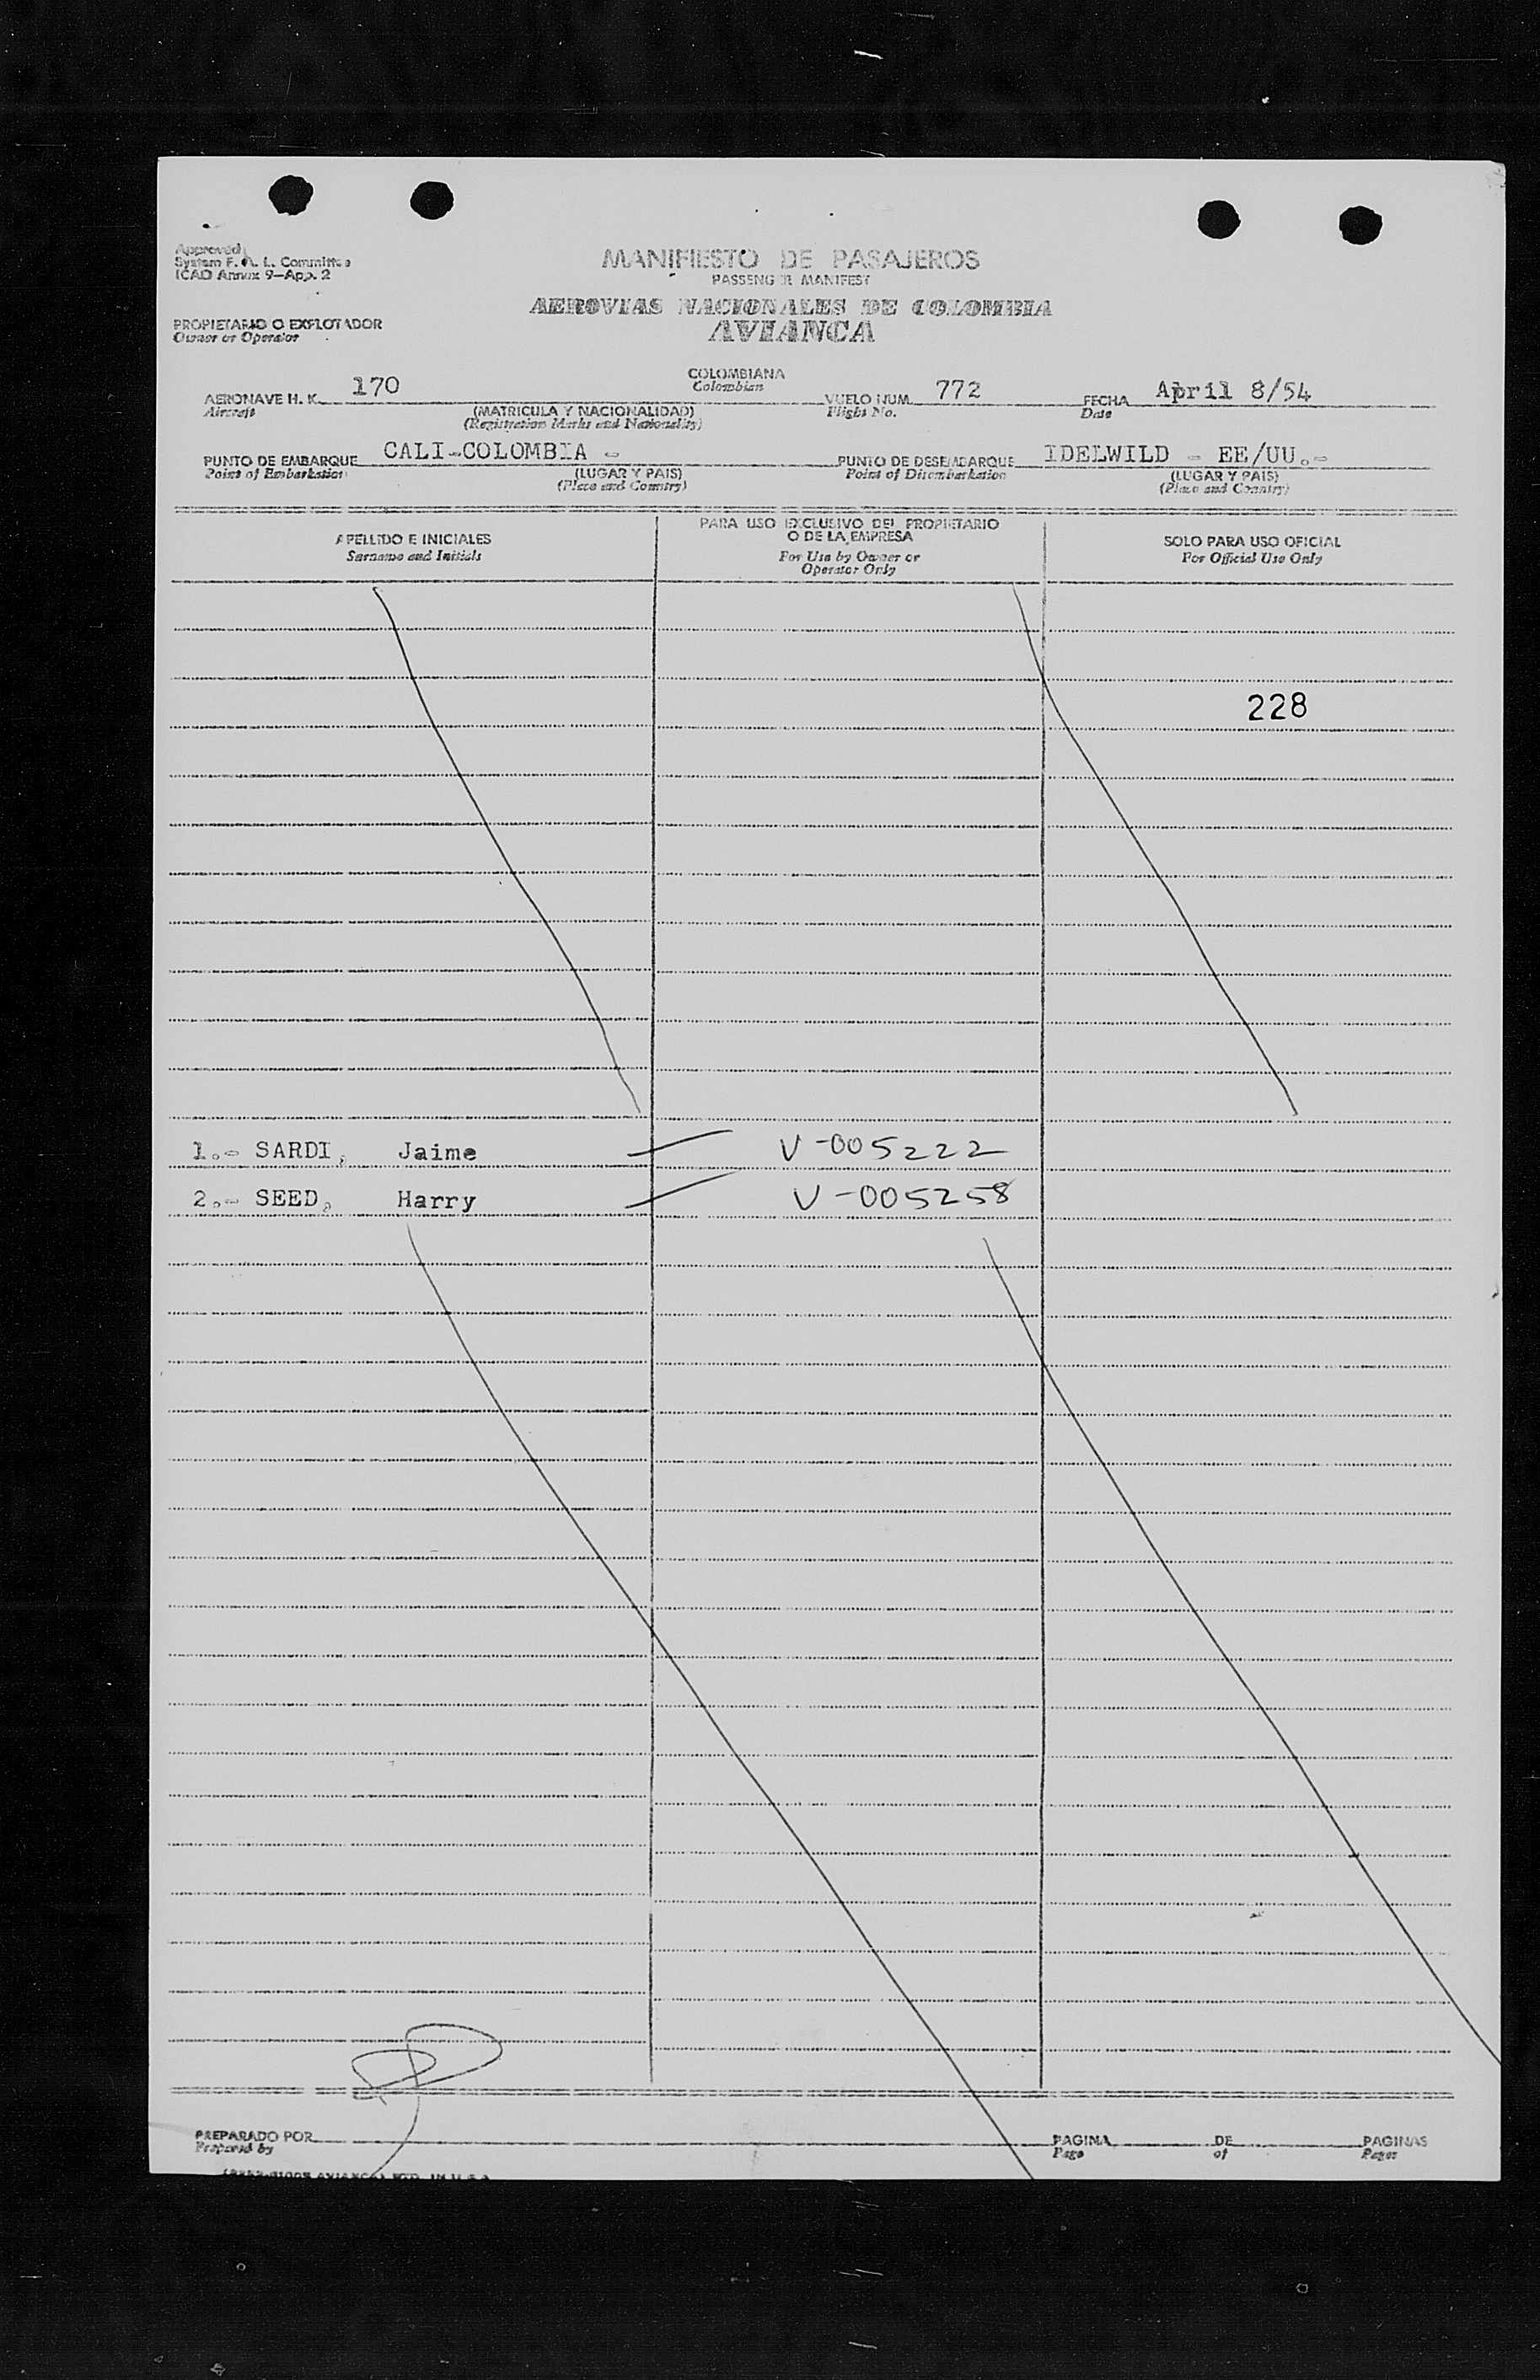 Approved
System F. A. L. Committee
ICAO Annex 9-App. 2
MANIFIESTO DE PASAJEROS
PASSENGER MANIFEST
AEROVIAS NACIONALES DE COLOMBIA
AVIANCA
PROPIETARIO O EXPLOTADOR
Owner or Operator
AERONAVE H. K. 170 COLOMBIANA VUELO NUM. 772 FECHA April 8/54
Aircraft (MATRICULA Y NACIONALIDAD) Colombian Flight No. Date
(Registration Marks and Nationality)
PUNTO DE EMBARQUE CALI-COLOMBIA - PUNTO DE DESEMBARQUE IDELWILD - EE/UU.-
Point of Embarkation (LUGAR Y PAIS) Point of Disembarkation (LUGAR Y PAIS)
(Place and Country) (Place and Country)
APELLIDO E INICIALES
Surname and Initials
PARA USO EXCLUSIVO DEL PROPIETARIO
O DE LA EMPRESA
For Use by Owner or
Operator Only
SOLO PARA USO OFICIAL
For Official Use Only
228
1.- SARDI, Jaime V-005222
2.- SEED, Harry V-005258
PREPARADO POR PAGINA DE PAGINAS
Prepared by Page of Pages